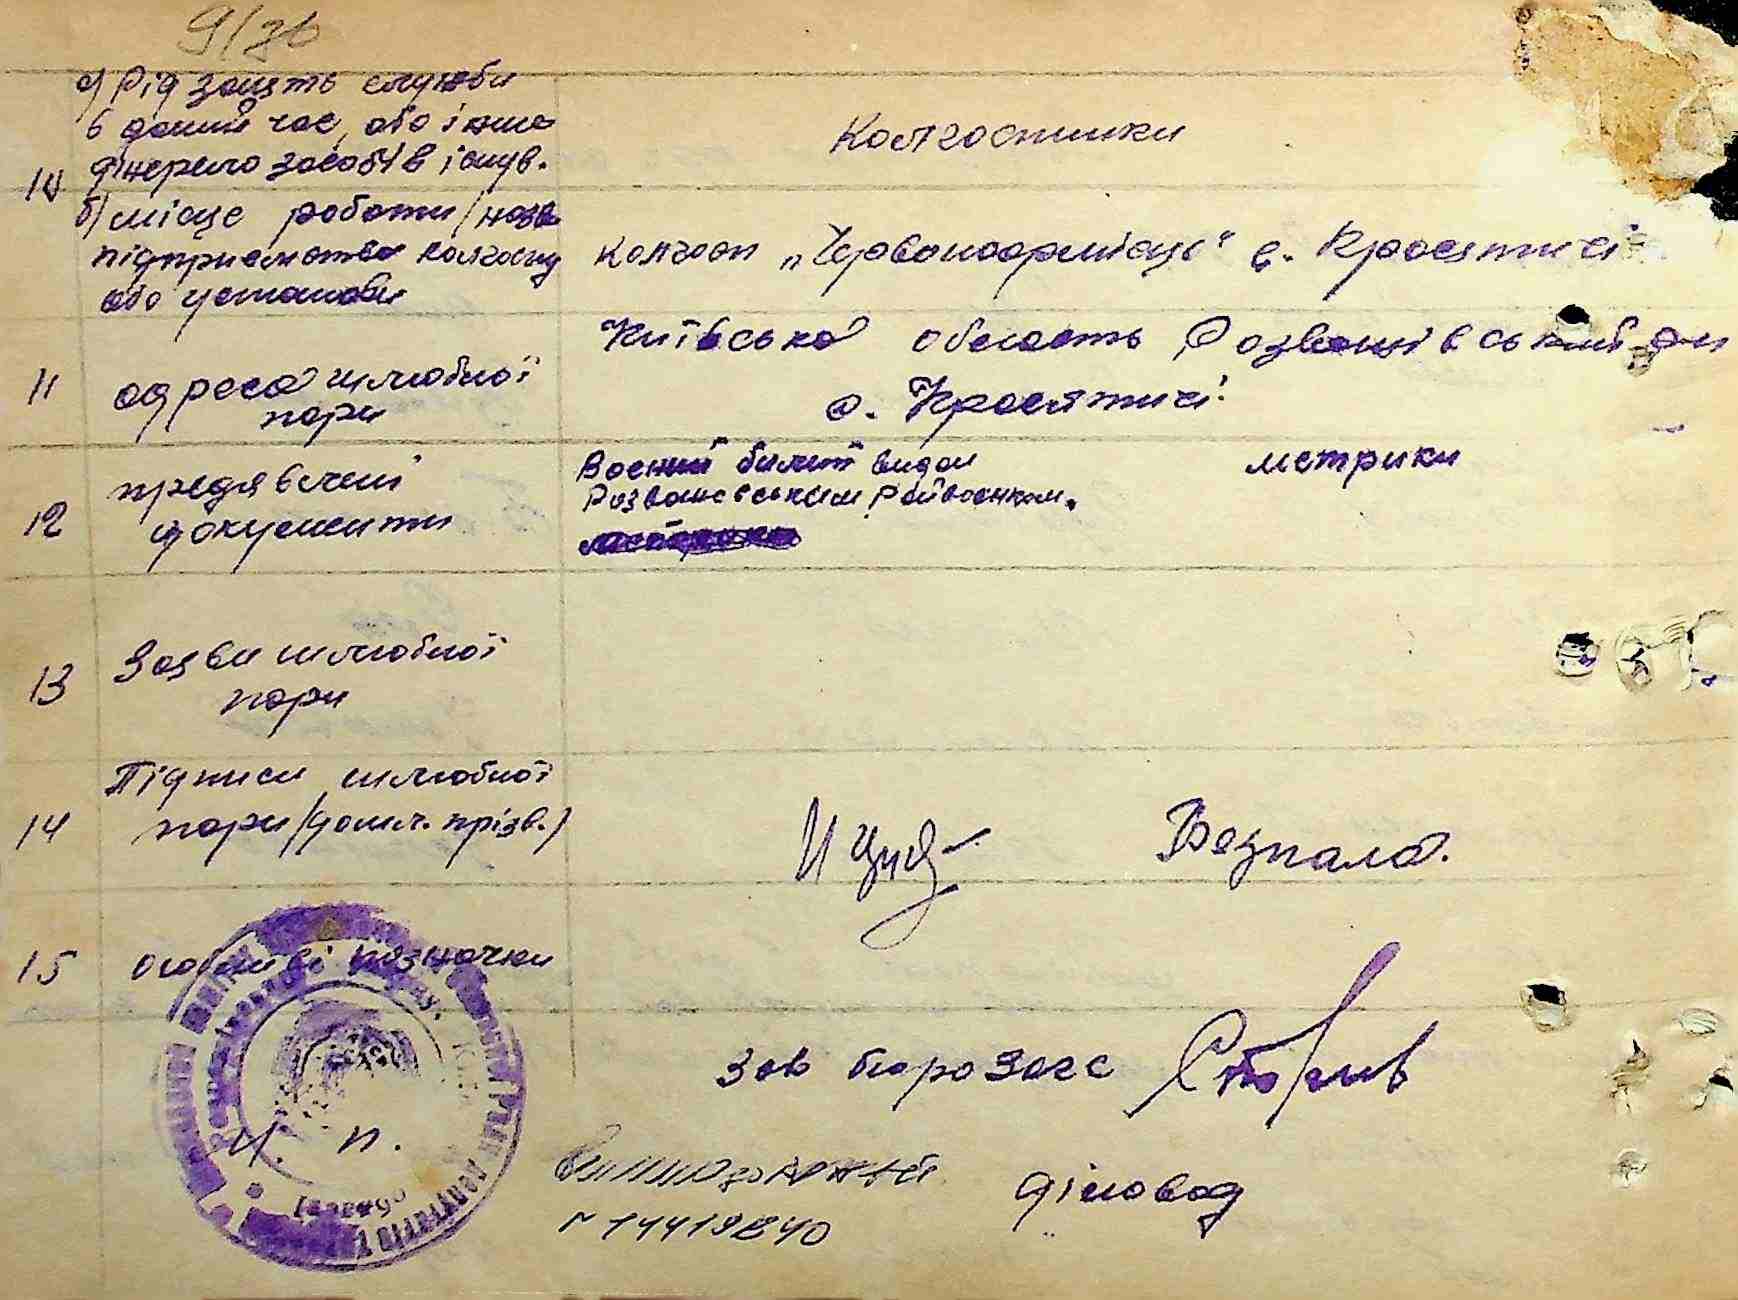 9/зв
10 а) Рід занять служби
в даний час, або інше
джерело засобів існув.
Колгоспники
б) місце роботи /назв.
підприємства колгоспу
або установи
колгосп „Червоноармієць" с. Кросятичі
11 адреса шлюбної
пари
Київська область Розважівський р-н
с. Кросятичі.
12 предявлені
документи
Воєний билет видан
Розважевським Райвоєнком.
метрики
13 Заяви шлюбної
пари
14 Підписи шлюбної
пари /дошл. прізв./
Безпала.
15 особливі позначки
Зав бюро Загс
М. п.
діловод